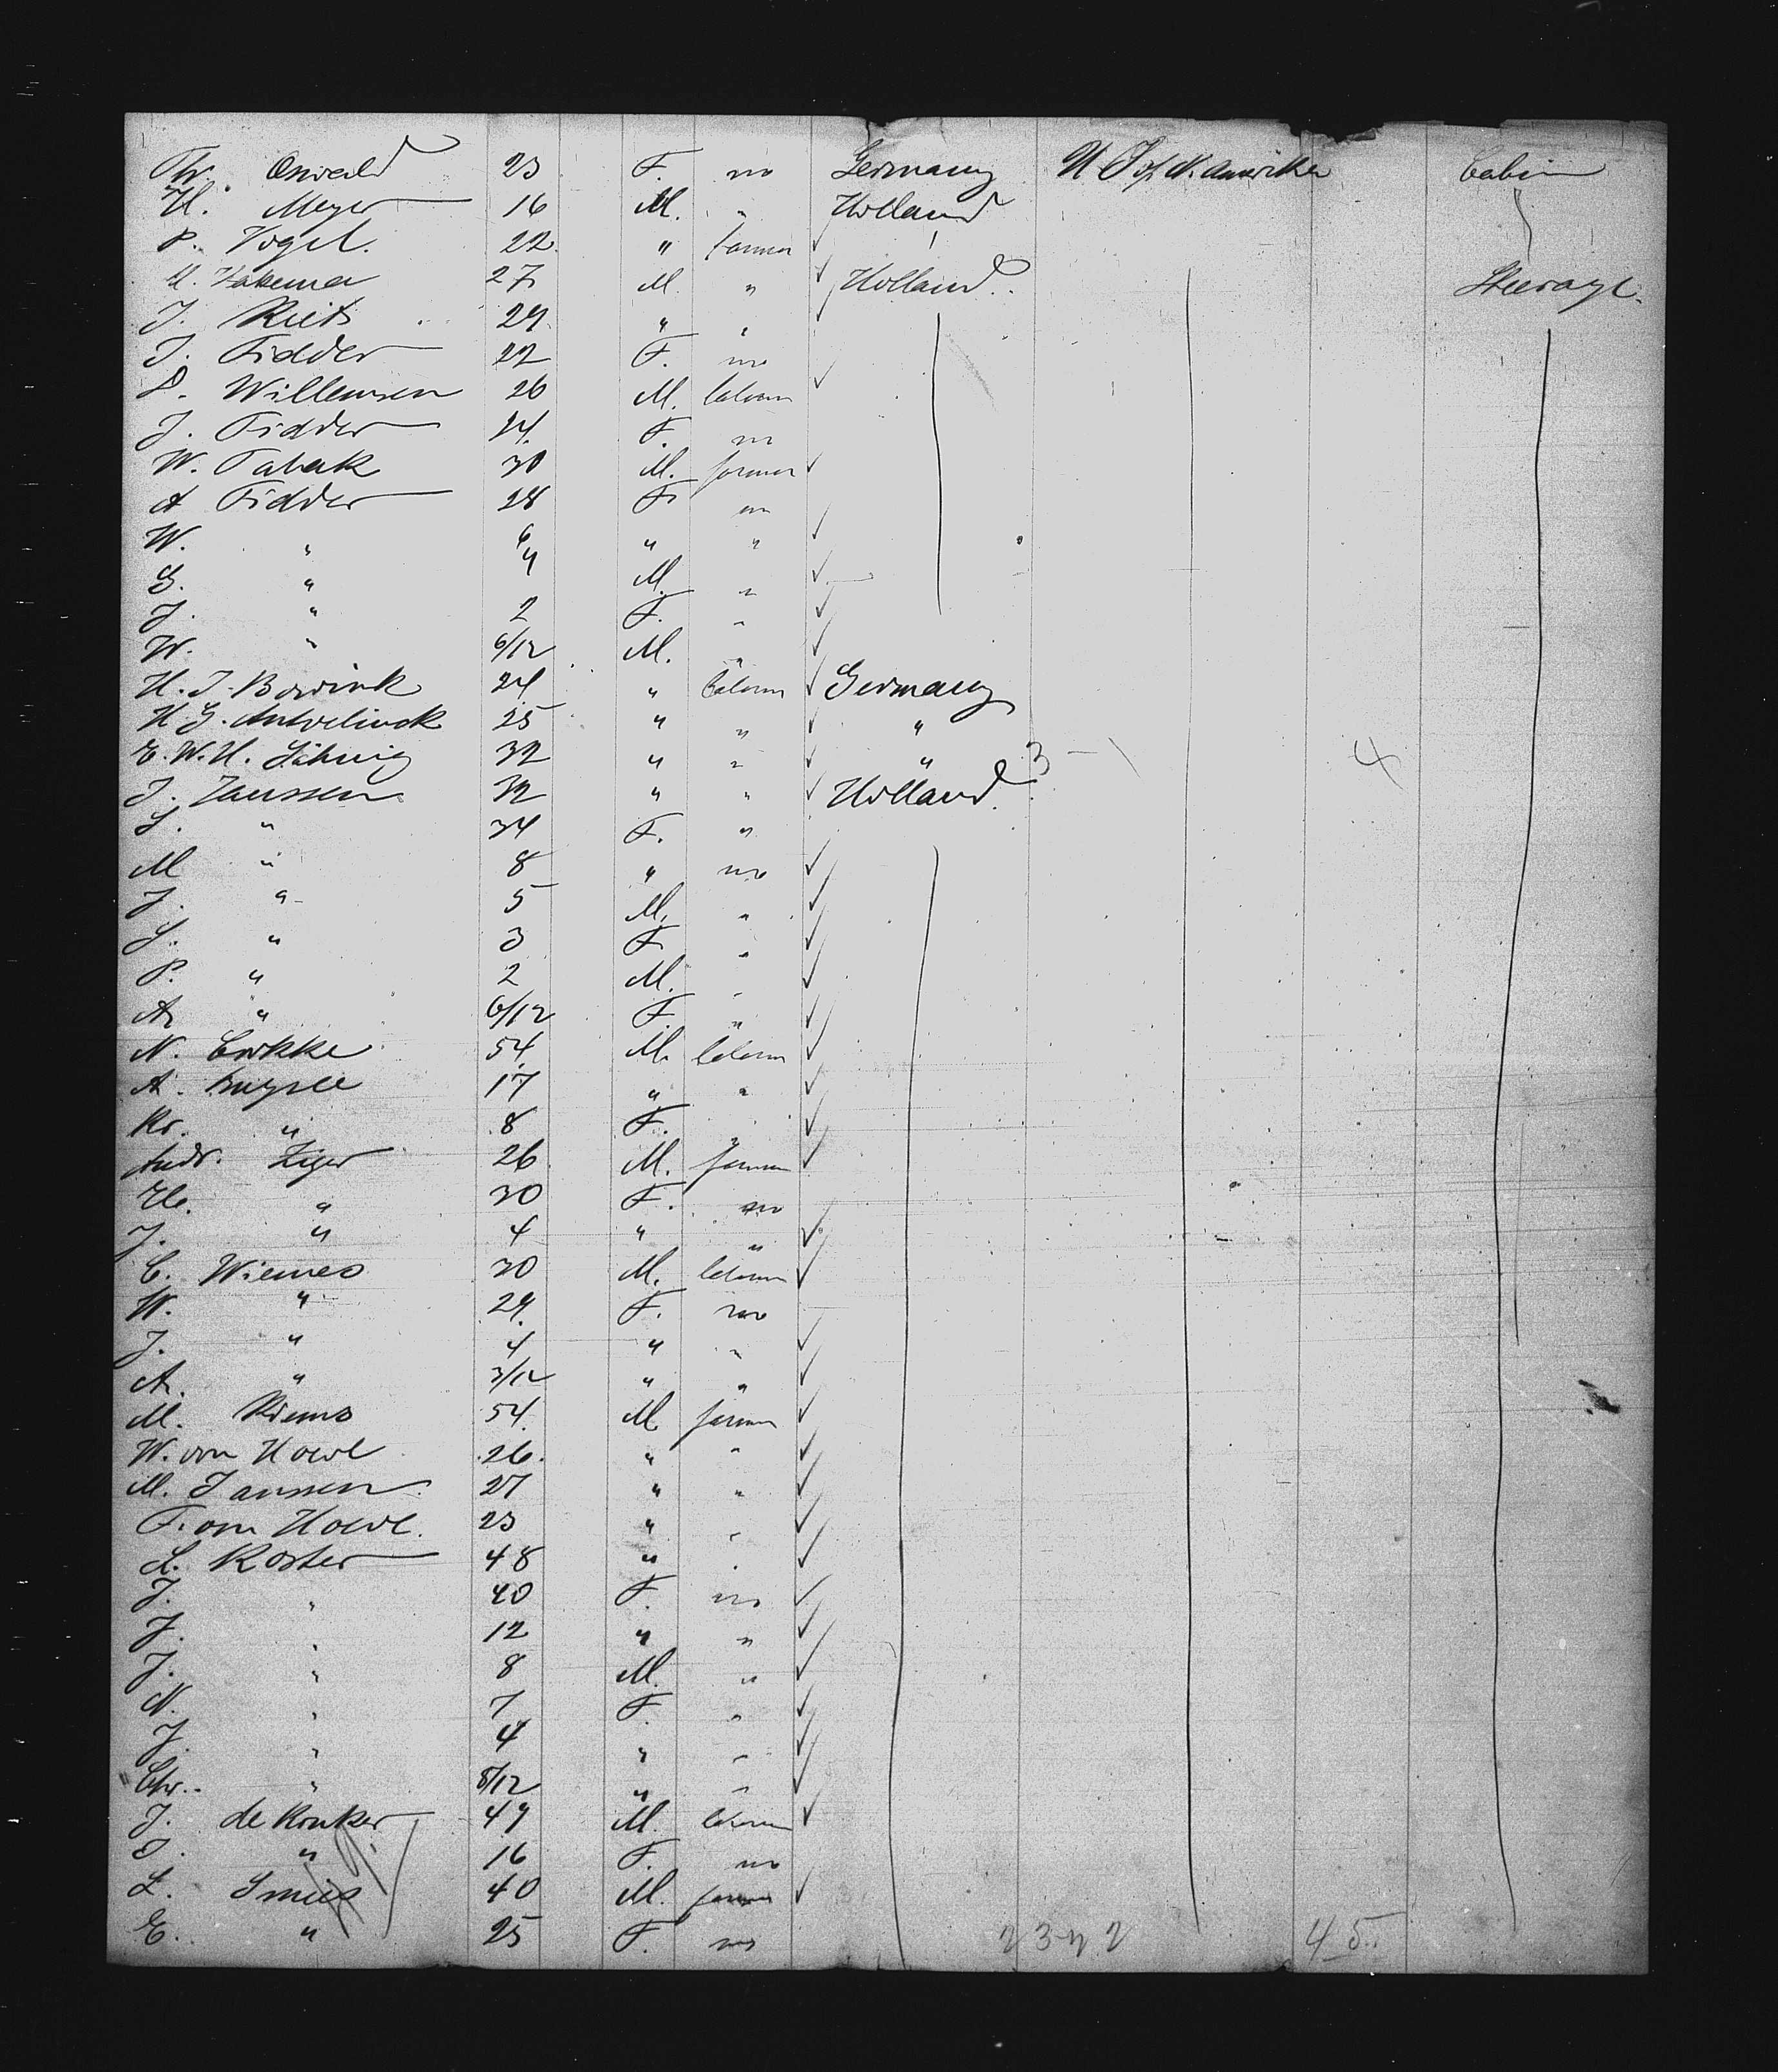 Th. Oswald 23 F. no Germany U S of N. Amerika Cabin
H. Meyer 16 M. " Holland
P. Vogel. 22 " farmer
27 M " Holland. Steerage.
J. Riets 29 " "
J. Fidder 22 F. no
P. Willemsen 26 M. laborer
J. Fidder 24 F. no
W. Tabak 30 M. farmer
A Fidder 28 F no
W. " 6 " "
G. " 4 M. "
J. " 2 F. "
W. " 6/12 M. "
H. J. Bowink 24 " laborer Germany
H G. Antvelinck 25 " " "
E. W. H. 32 " " " 3 - \ 4
J. Janssen 32 " " Holland.
G. " 34 F. "
M " 8 " no
J. " 5 M. "
G. " 3 F "
P. " 2 M. "
A. " 6/12 F "
N. Cokke 54 M. laborer
A. Buysse 17 " "
Kr. " 8 F. "
Andr. Ziger 26 M. farmer
" 30 F. no
J. " 4 " "
C. Wiemes 30 M. laborer
W. " 29 F. no
J. " 4 " "
A. " 3/12 " "
M. Riems 54 M farmer
W. van Hoeve 26. " "
M. Janssen 27 " "
F. van Hoeve. 23 " "
L. Koster 48 " "
J. " 40 F. no
J. " 12 " "
J. " 8 M. "
N. " 7 F. "
J. " 4 " "
Chr. " 8/12 " "
J. de Konker 49 M. laborer
" 16 F. no
L. Smees 40 M. farmer
E. " 25 F. no 45